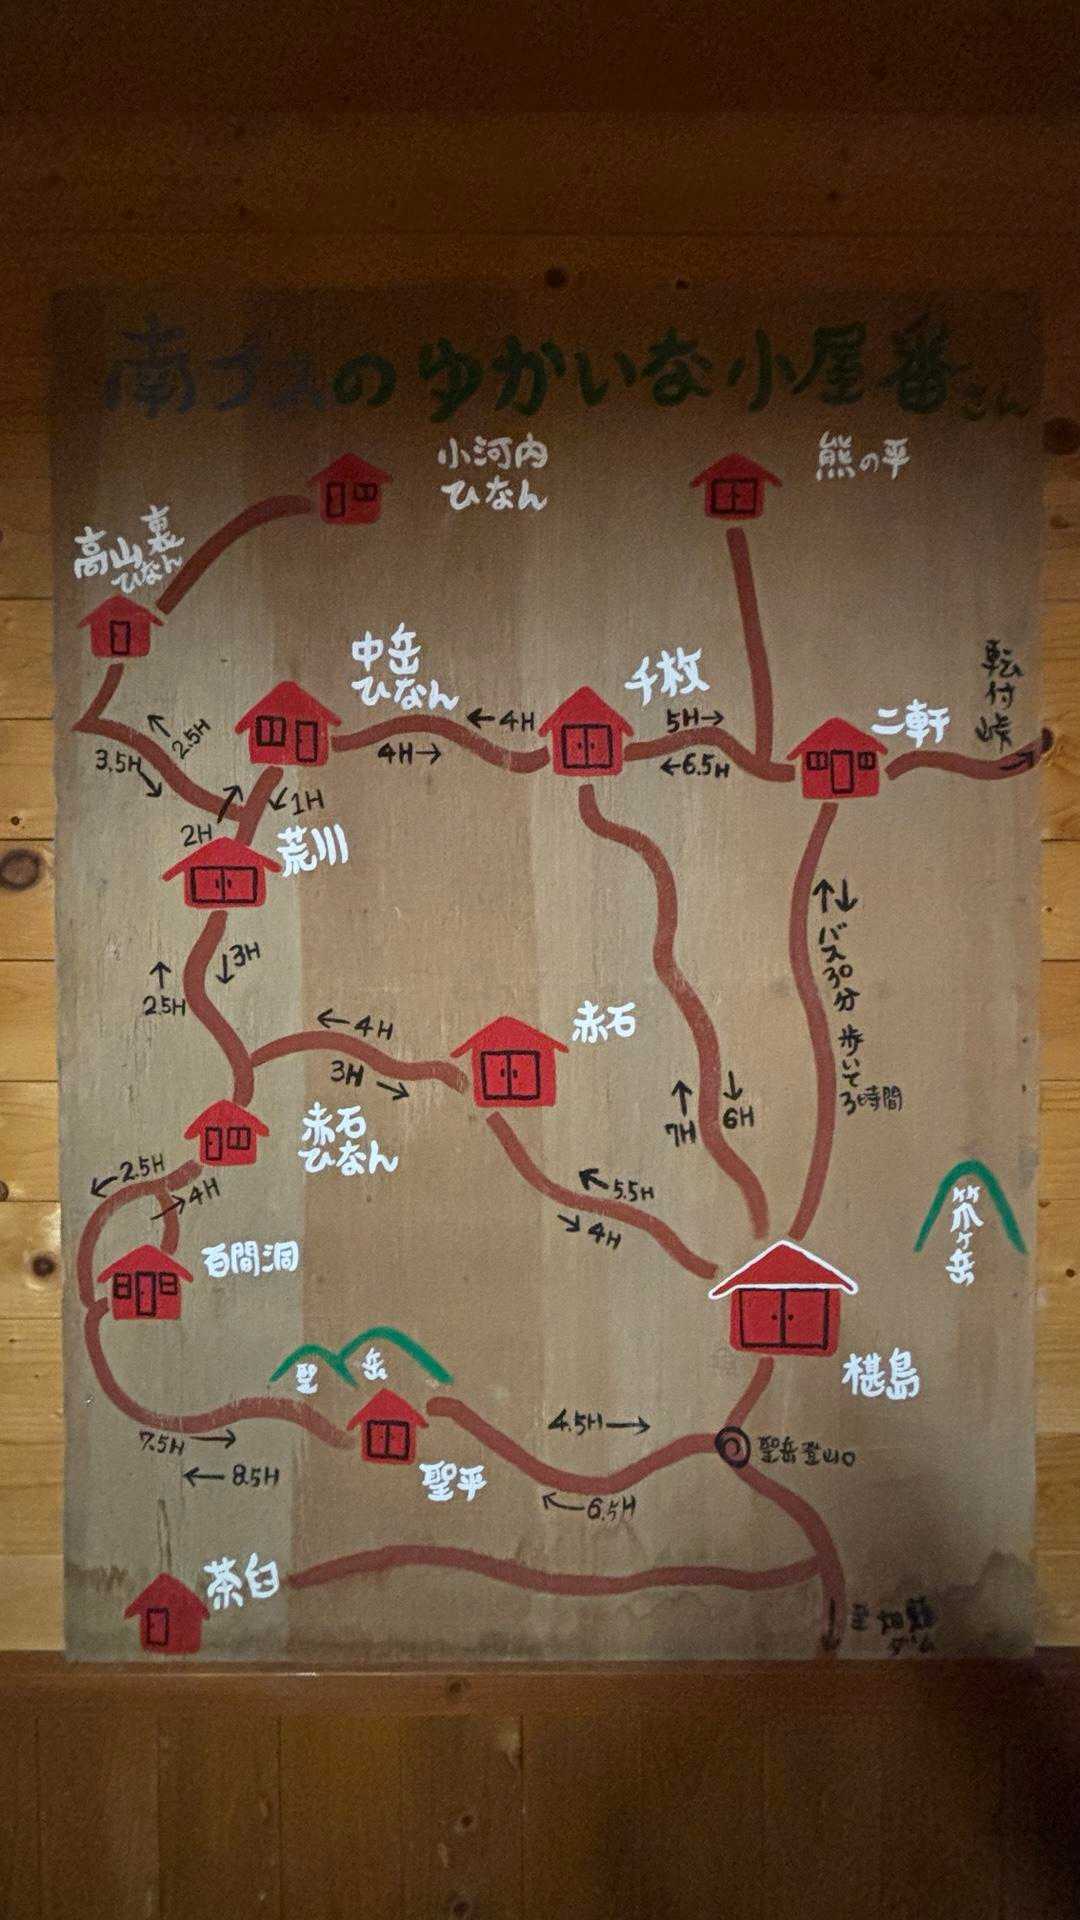 南アルプスのゆかいな小屋番さん
小河内
ひなん
熊の平
高山裏
ひなん
中岳
ひなん
千枚
二軒
転付峠
←4H
4H→
5H→
←6.5H
2.5H
3.5H
1H
2H
荒川
↑↓バス30分 歩いて3時間
↓3H
↑
2.5H
赤石
←4H
3H→
↑
7H
↓
6H
赤石
ひなん
←2.5H
→4H
5.5H
4H
百間洞
笊ヶ岳
聖岳
椹島
4.5H→
聖岳登山口
7.5H→
←8.5H
聖平
←6.5H
茶臼
↓至畑薙
ダム